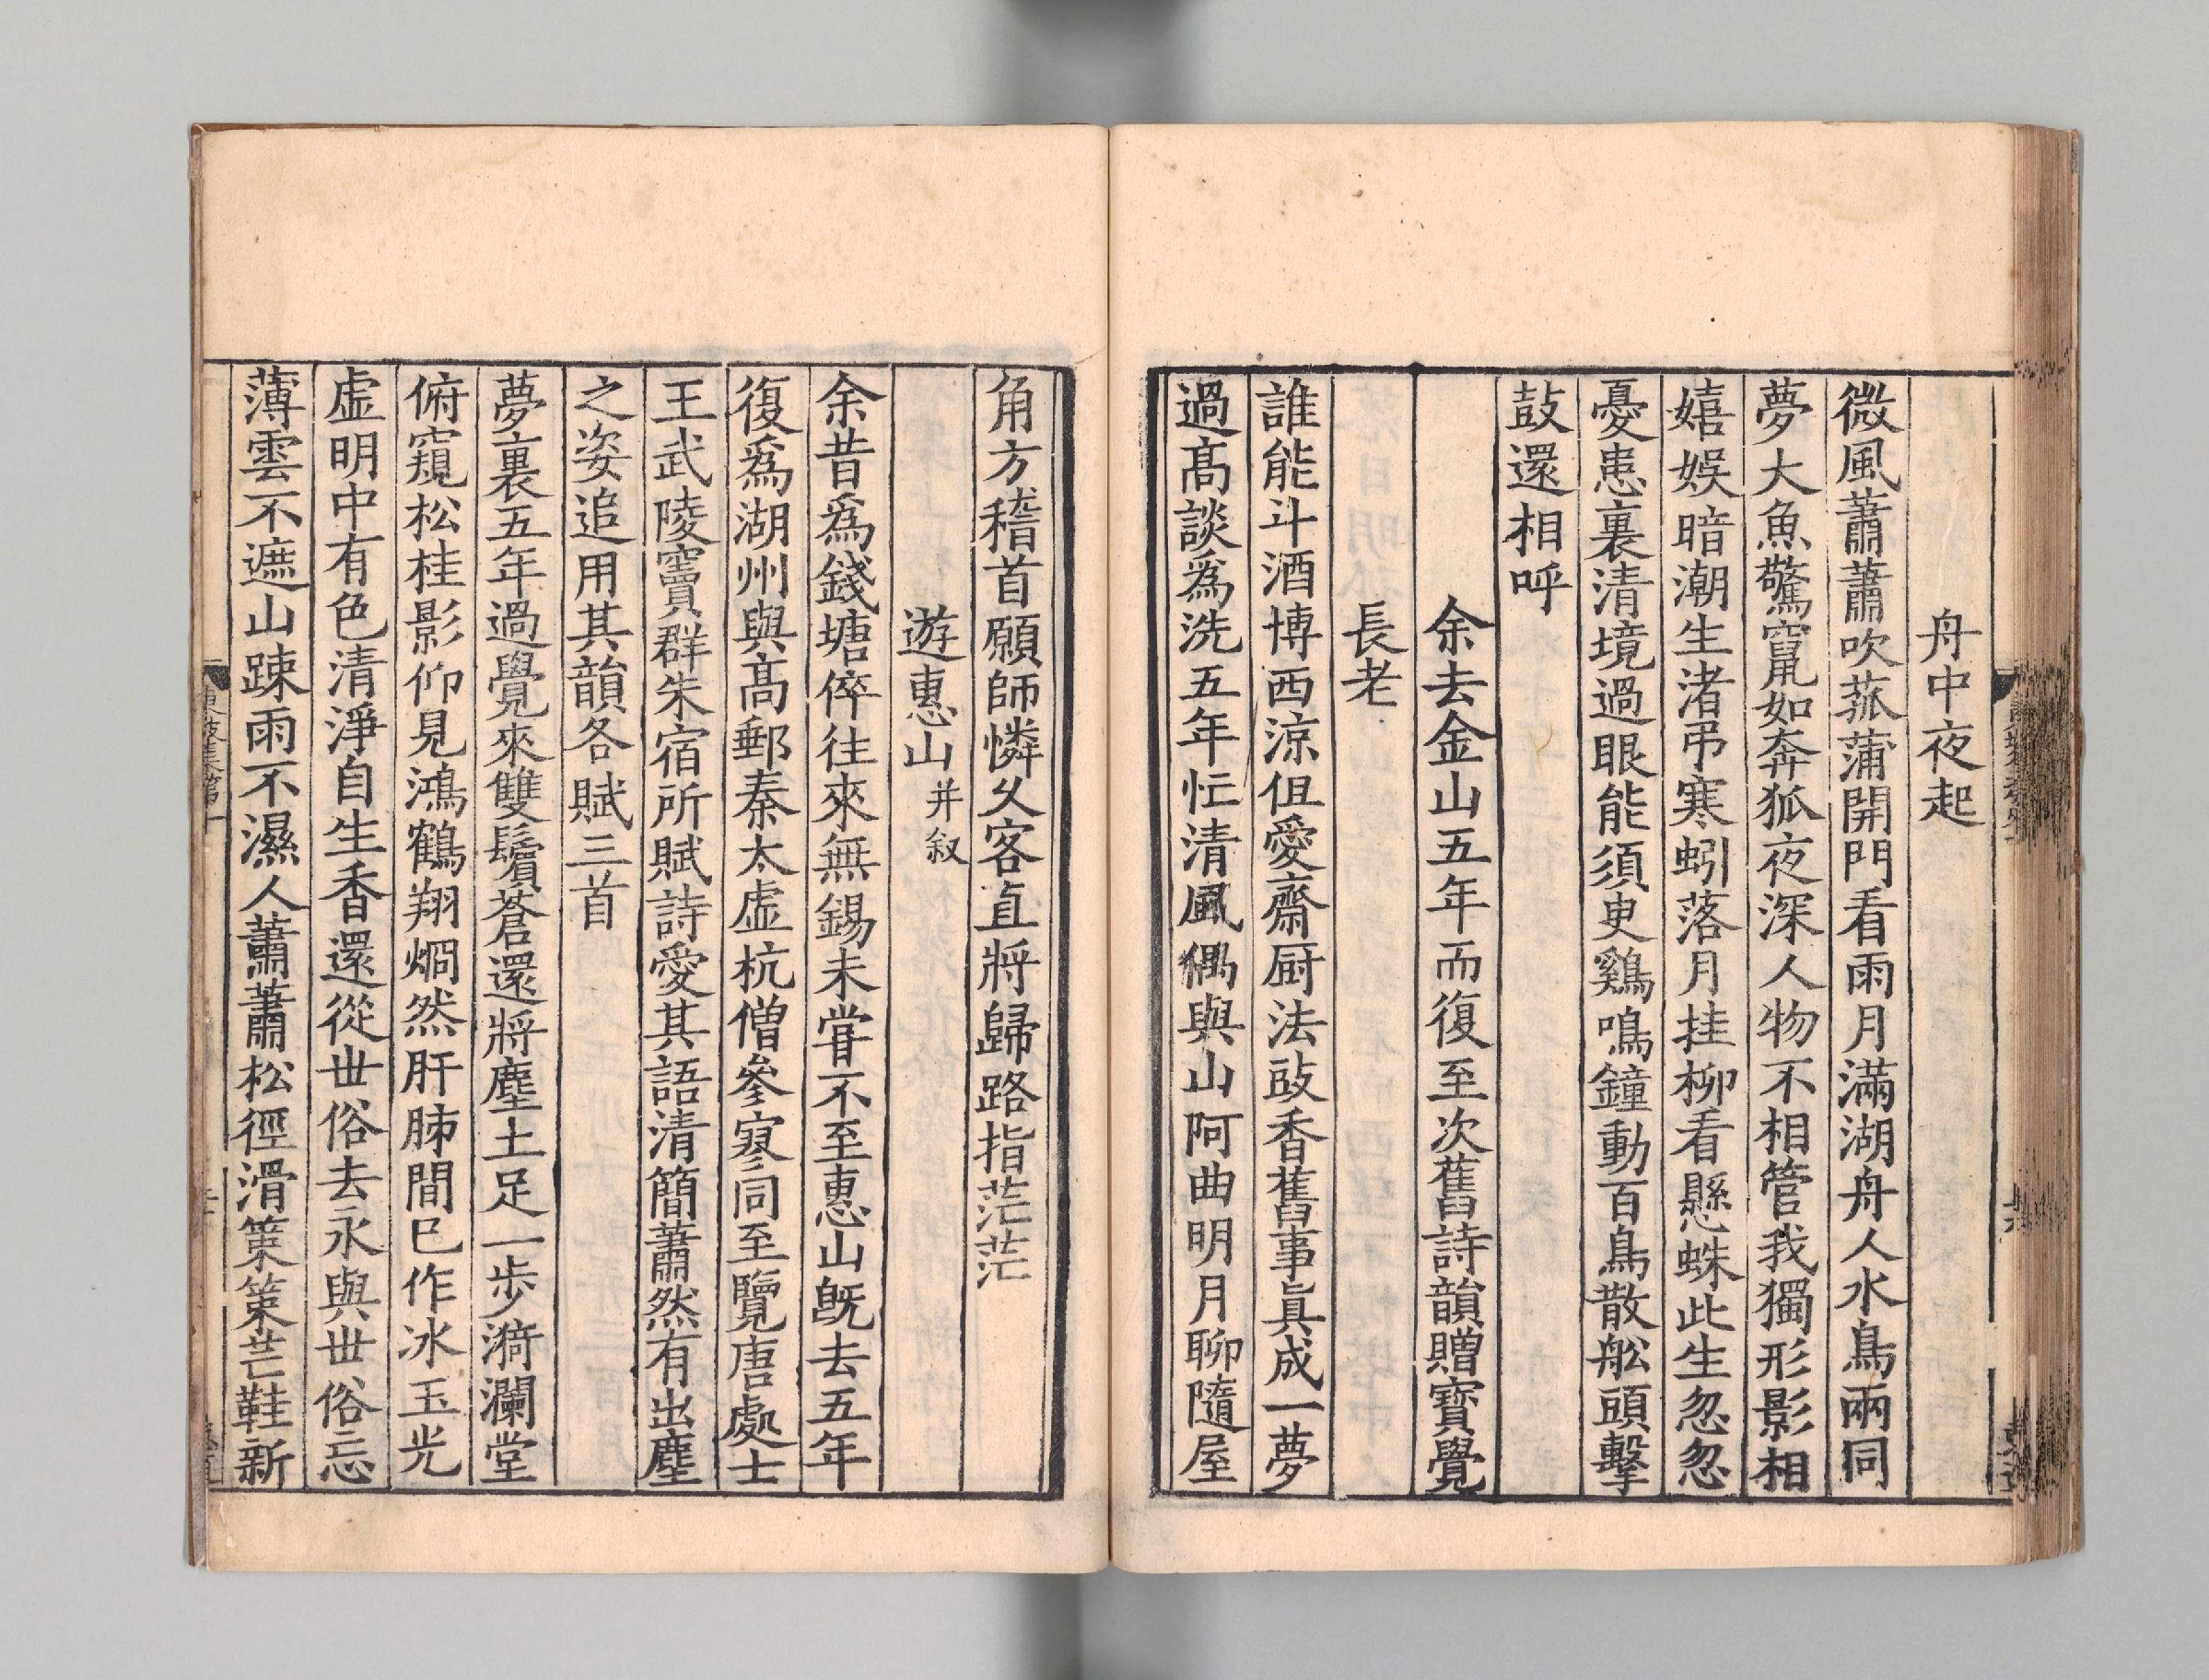 舟中夜起
微風蕭蕭吹菰蒲開門看雨月滿湖舟人水鳥兩同
夢大魚驚竄如奔狐夜深人物不相管我獨形影相
嬉娛暗潮生渚弔寒蚓落月挂柳看懸蛛此生忽忽
憂患裏清境過眼能須臾鷄鳴鐘動百鳥散舩頭擊
鼓還相呼
余去金山五年而復至次舊詩韻贈寳覺
長老
誰能斗酒博西涼但愛齋厨法豉香舊事眞成一夢
過髙談爲洗五年忙清風偶與山阿曲明月聊隨屋
角方稽首願師憐久客直將歸路指茫茫
遊惠山并叙
余昔爲錢塘倅往來無錫未甞不至惠山旣去五年
復爲湖州與髙郵秦太虚杭僧參寥同至覽唐處士
王武陵竇群朱宿所賦詩愛其語清簡蕭然有出塵
之姿追用其韻各賦三首
夢裏五年過覺來雙鬢蒼還將塵土足一歩漪瀾堂
俯窺松桂影仰見鴻鶴翔烱然肝肺間已作冰玉光
虚明中有色清淨自生香還從世俗去永與世俗忘
薄雲不遮山踈雨不濕人蕭蕭松徑滑策策芒鞋新